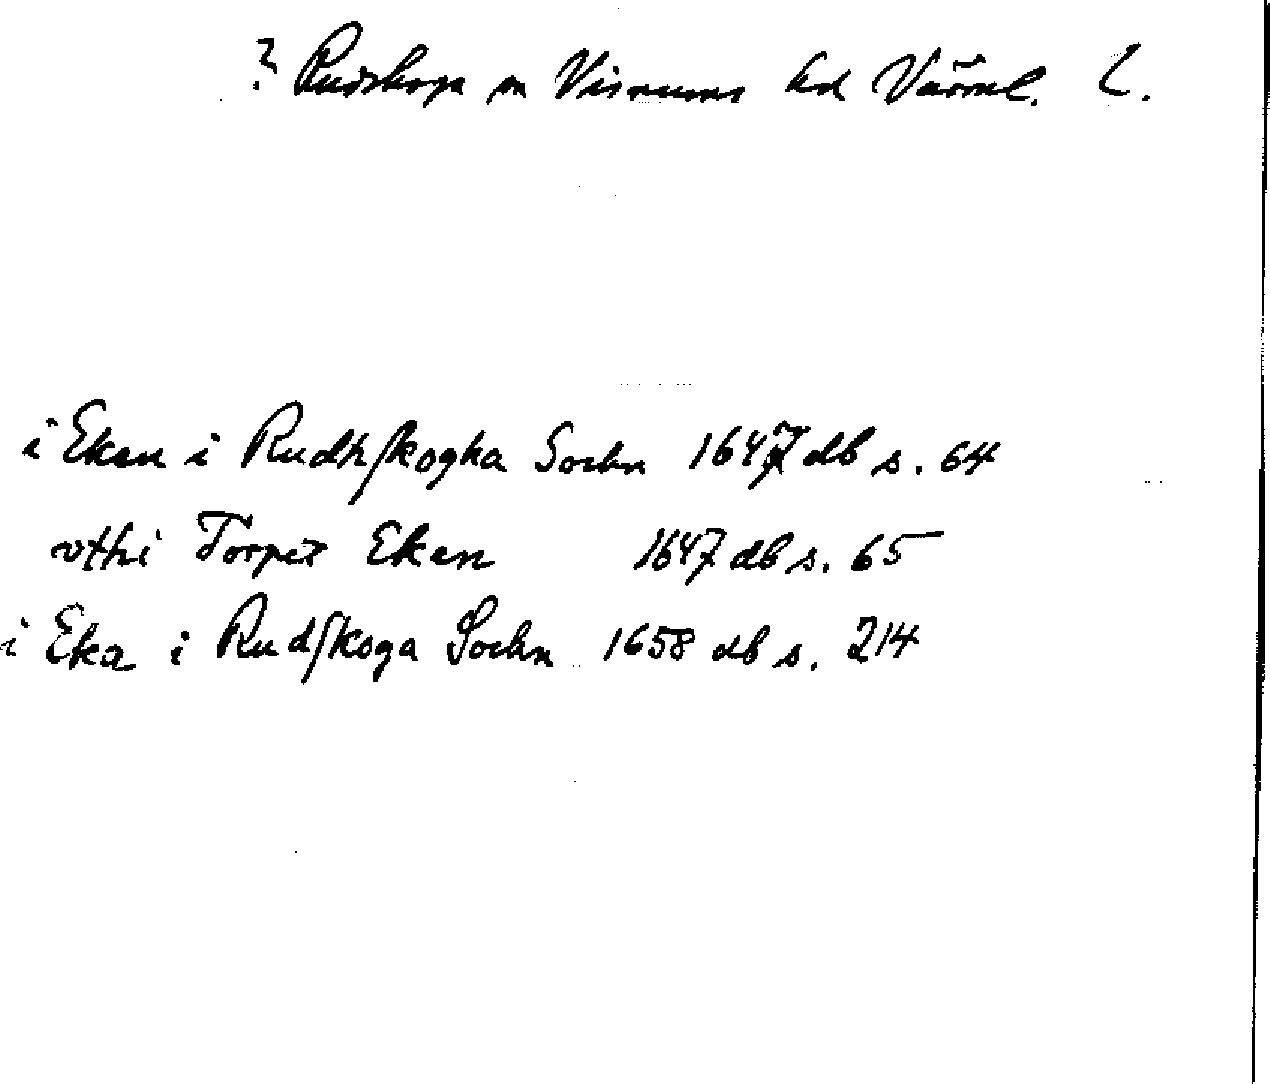 ? Rudskoga sn Visnums hd Värml. L.
i Eken i Rudhſkogha Sochn 1647 db s. 64
vthi Torpet Eken 1647 db s. 65
i Eka i Rudſkoga Sochn 1658 db s. 214